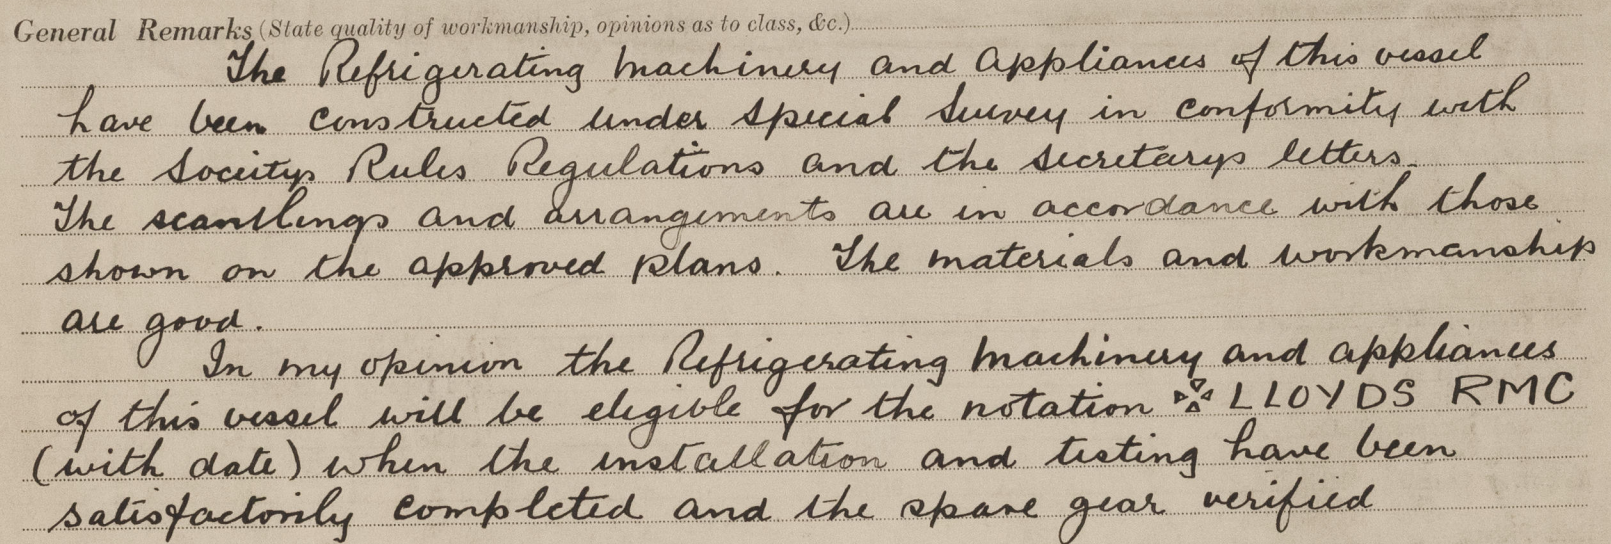 General Remarks (State quality of workmanship, opinions as to class, &c.)
The Refrigerating Machinery and Appliances of this vessel
have been constructed under special survey in conformity with
the Soceitys Rules Regulations and the secretarys letters.
The scantlings and arrangements are in accordance with those
shown on the approved plans. The materials and workmanship
are good.
In my opinion the Refrigerating Machinery and appliances
of this vessel will be elegible for the notation ✠ LLOYDS RMC
(with date) when the installation and testing have been
satisfactorily completed and the spare gear verified